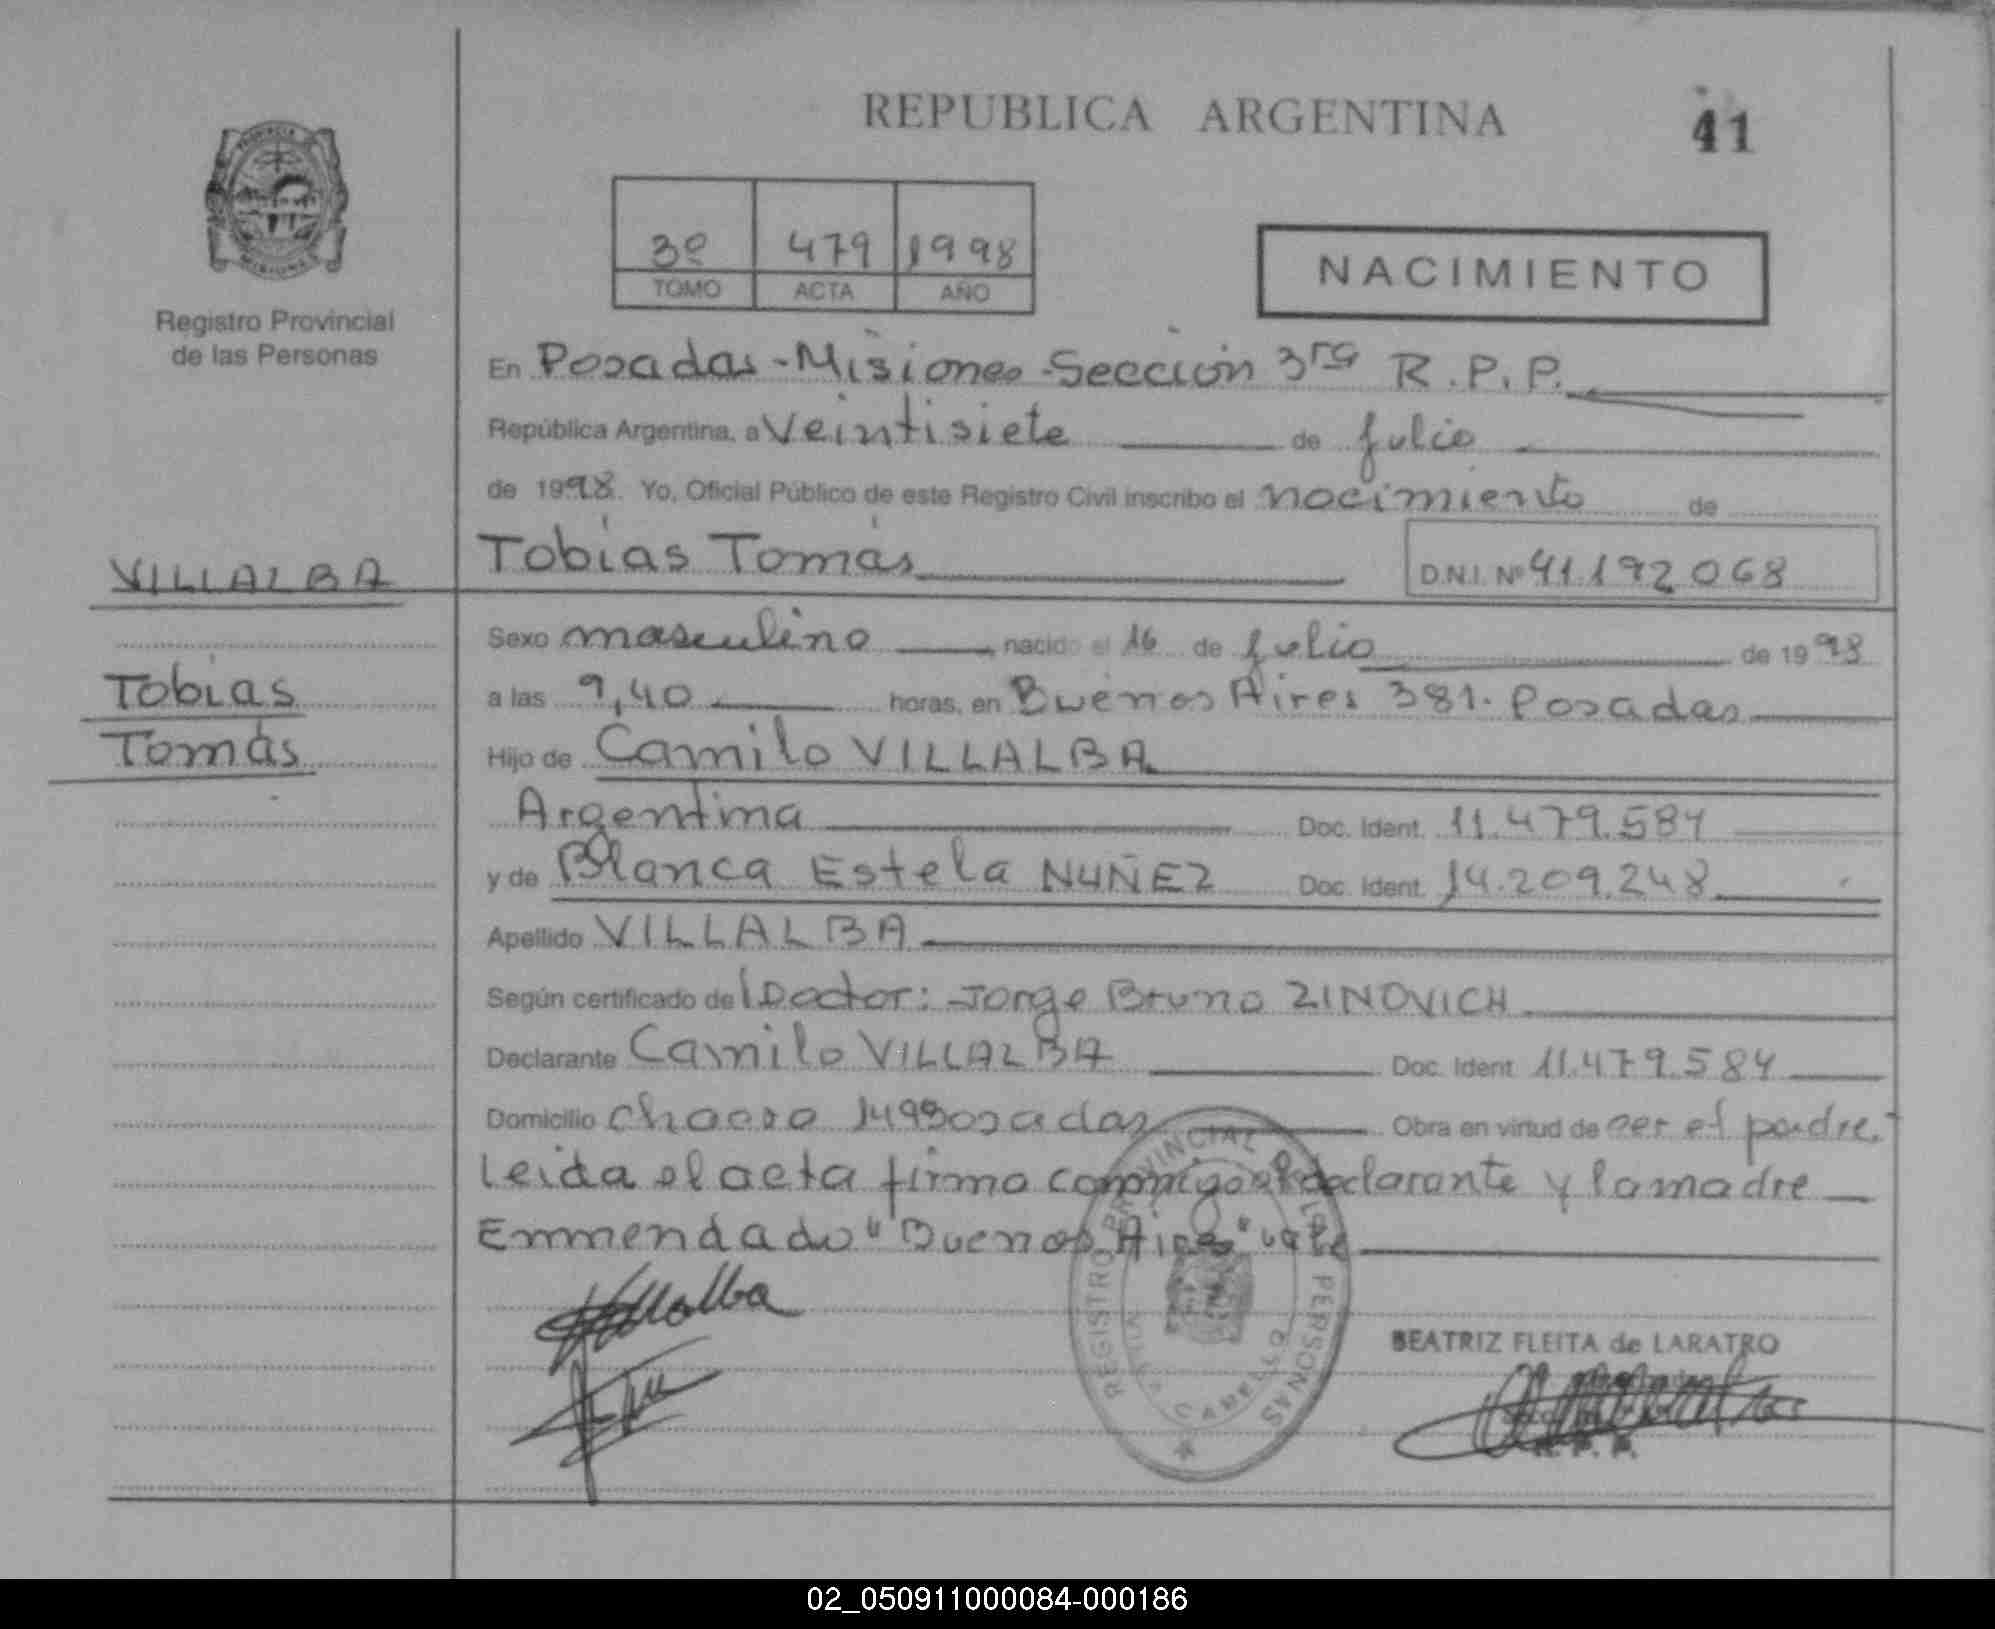 REPUBLICA ARGENTINA
41
PROVINCIA
MISIONES
Registro Provincial
de las Personas
3º 479 1998
TOMO ACTA AÑO
NACIMIENTO
En Posadas - Misiones - Sección 3ra R.P.P.
República Argentina, a Veintisiete de julio
de 1998. Yo, Oficial Público de este Registro Civil inscribo el nacimiento de
VILLALBA
Tobías Tomás
D.N.I. Nº 41.192.068
Sexo masculino nacido el 16 de julio de 1998
Tobías
a las 9,40 horas, en Buenos Aires 381. Posadas
Tomás
Hijo de Camilo VILLALBA
Argentina Doc. Ident. 11.479.584
y de Blanca Estela NUÑEZ Doc. Ident. 14.209.248
Apellido VILLALBA
Según certificado de l Doctor: Jorge Bruno ZINOVICH
Declarante Camilo VILLALBA Doc. Ident. 11.479.584
Domicilio chacra 149 Posadas Obra en virtud de ser el padre.
Leida el acta firma conmigo el declarante y la madre
Enmendado "Buenos Aires" vale
Villalba
REGISTRO PROVINCIAL DE LAS PERSONAS
VILLA CABELLO
BEATRIZ FLEITA de LARATRO
02_050911000084-000186